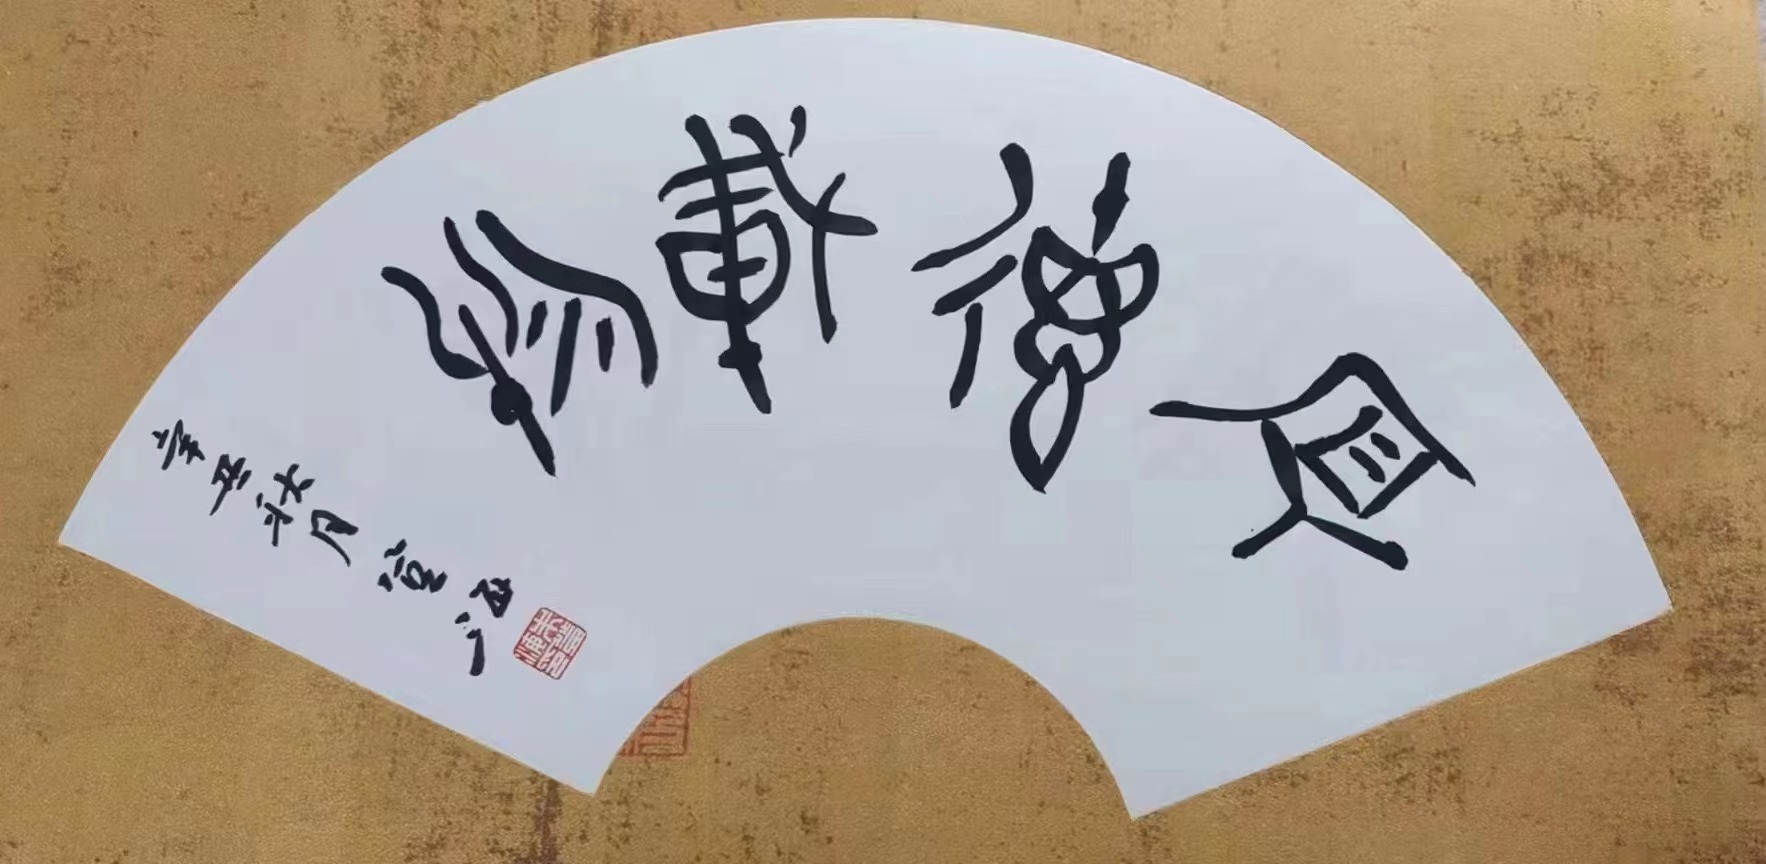 厚德載物
辛丑秋月